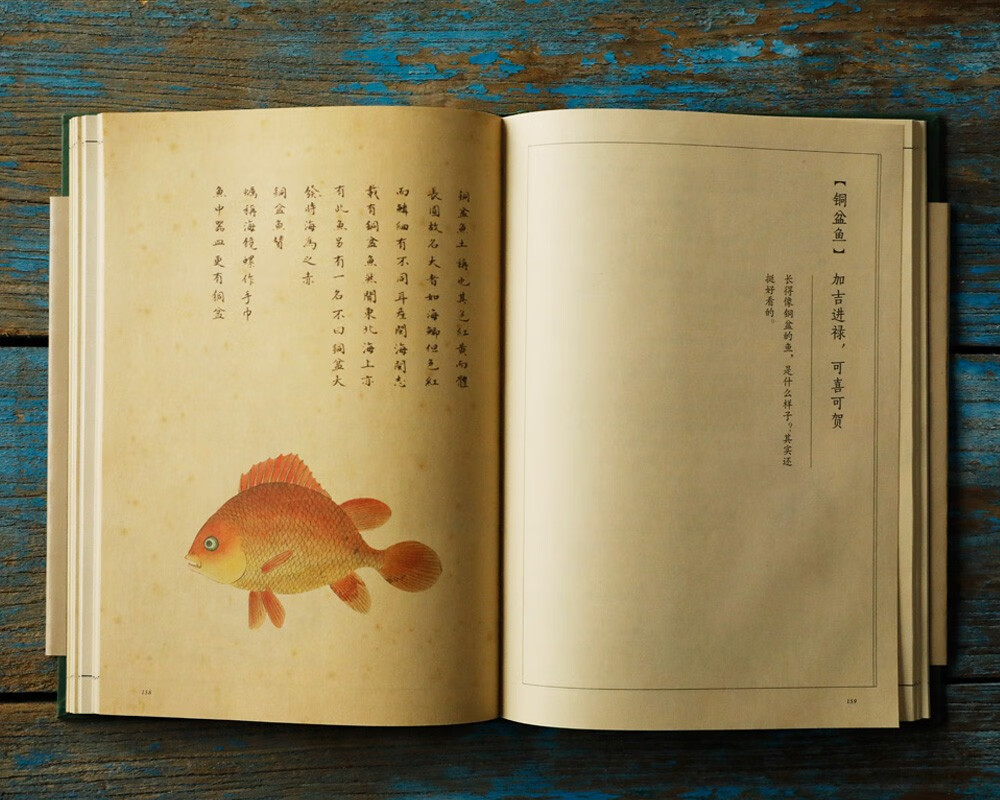 銅盆魚土稱也其色紅黃而體
長圓故名大者如海鯽但色紅
而鱗細有不同耳產閩海閩志
載有銅盆魚然聞東北海上亦
有此魚另有一名不曰銅盆大
發將海為之赤
銅盆魚贊
蠣稱海鏡螺作手巾
魚中器皿更有銅盆
【铜盆鱼】 加吉进禄，可喜可贺
长得像铜盆的鱼，是什么样子？其实还
挺好看的。
159